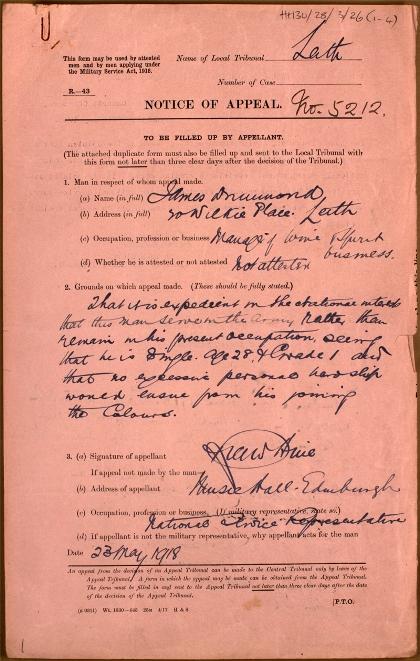 HH30/28/3/26 (1-4)
This form may be used by attested
men and by men applying under
the Military Service Act, 1916.
R.—43
Name of Local Tribunal Leith
Number of Case
NOTICE OF APPEAL. No. 5212.
TO BE FILLED UP BY APPELLANT.
(The attached duplicate form must also be filled up and sent to the Local Tribunal with
this form not later than three clear days after the decision of the Tribunal.)
1. Man in respect of whom appeal made.
(a) Name (in full) James Drummond
(b) Address (in full) 20 Wilkie Place. Leith
(c) Occupation, profession or business Manager of wine & spirit
business.
(d) Whether he is attested or not attested Not attested
2. Grounds on which appeal made. (These should be fully stated.)
That it is expedient in the national interest
that this man serve in the Army rather than
remain in his present occupation, seeing
that he is Single. Age 28 & Grade 1 and
that no excessive personal hardship
would ensue from his joining
the Colours.
3. (a) Signature of appellant
If appeal not made by the man—
(b) Address of appellant Music Hall - Edinburgh
(c) Occupation, profession or business. (If military representative, state so.)
National Service Representative
(d) If appellant is not the military representative, why appellant acts for the man
Date 23 May 1918
An appeal from the decision of an Appeal Tribunal can be made to the Central Tribunal only by leave of the
Appeal Tribunal. A form in which the appeal may be made can be obtained from the Appeal Tribunal. The
form must be filled in and sent to the Appeal Tribunal not later than three clear days after the date
of the decision of the Appeal Tribunal.
[P.T.O.
4/17 H & S